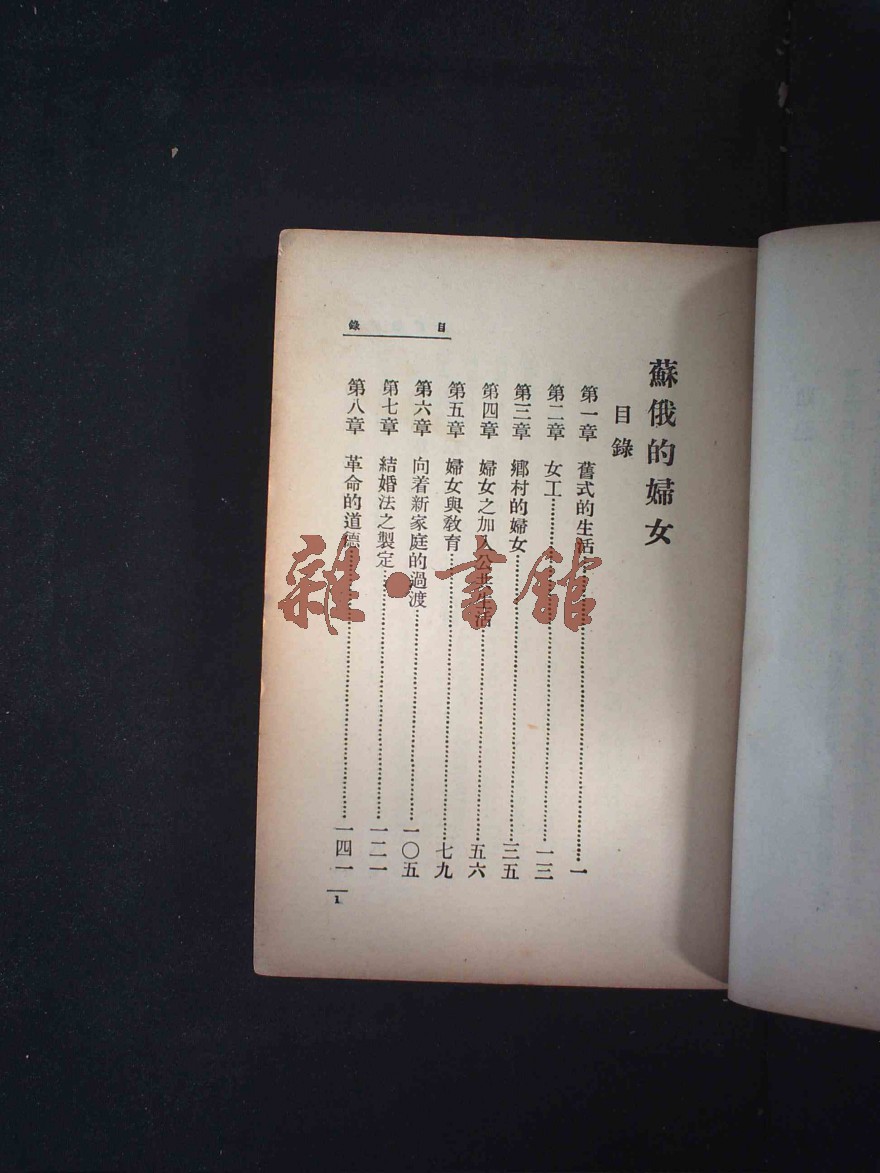 蘇俄的婦女
目錄
第一章 舊式的生活…………一
第二章 女工…………一三
第三章 鄉村的婦女…………三五
第四章 婦女之加入公共生活…………五六
第五章 婦女與敎育…………七九
第六章 向着新家庭的過渡…………一〇五
第七章 結婚法之製定…………一二一
第八章 革命的道德…………一四一
目錄
1
雜·書館